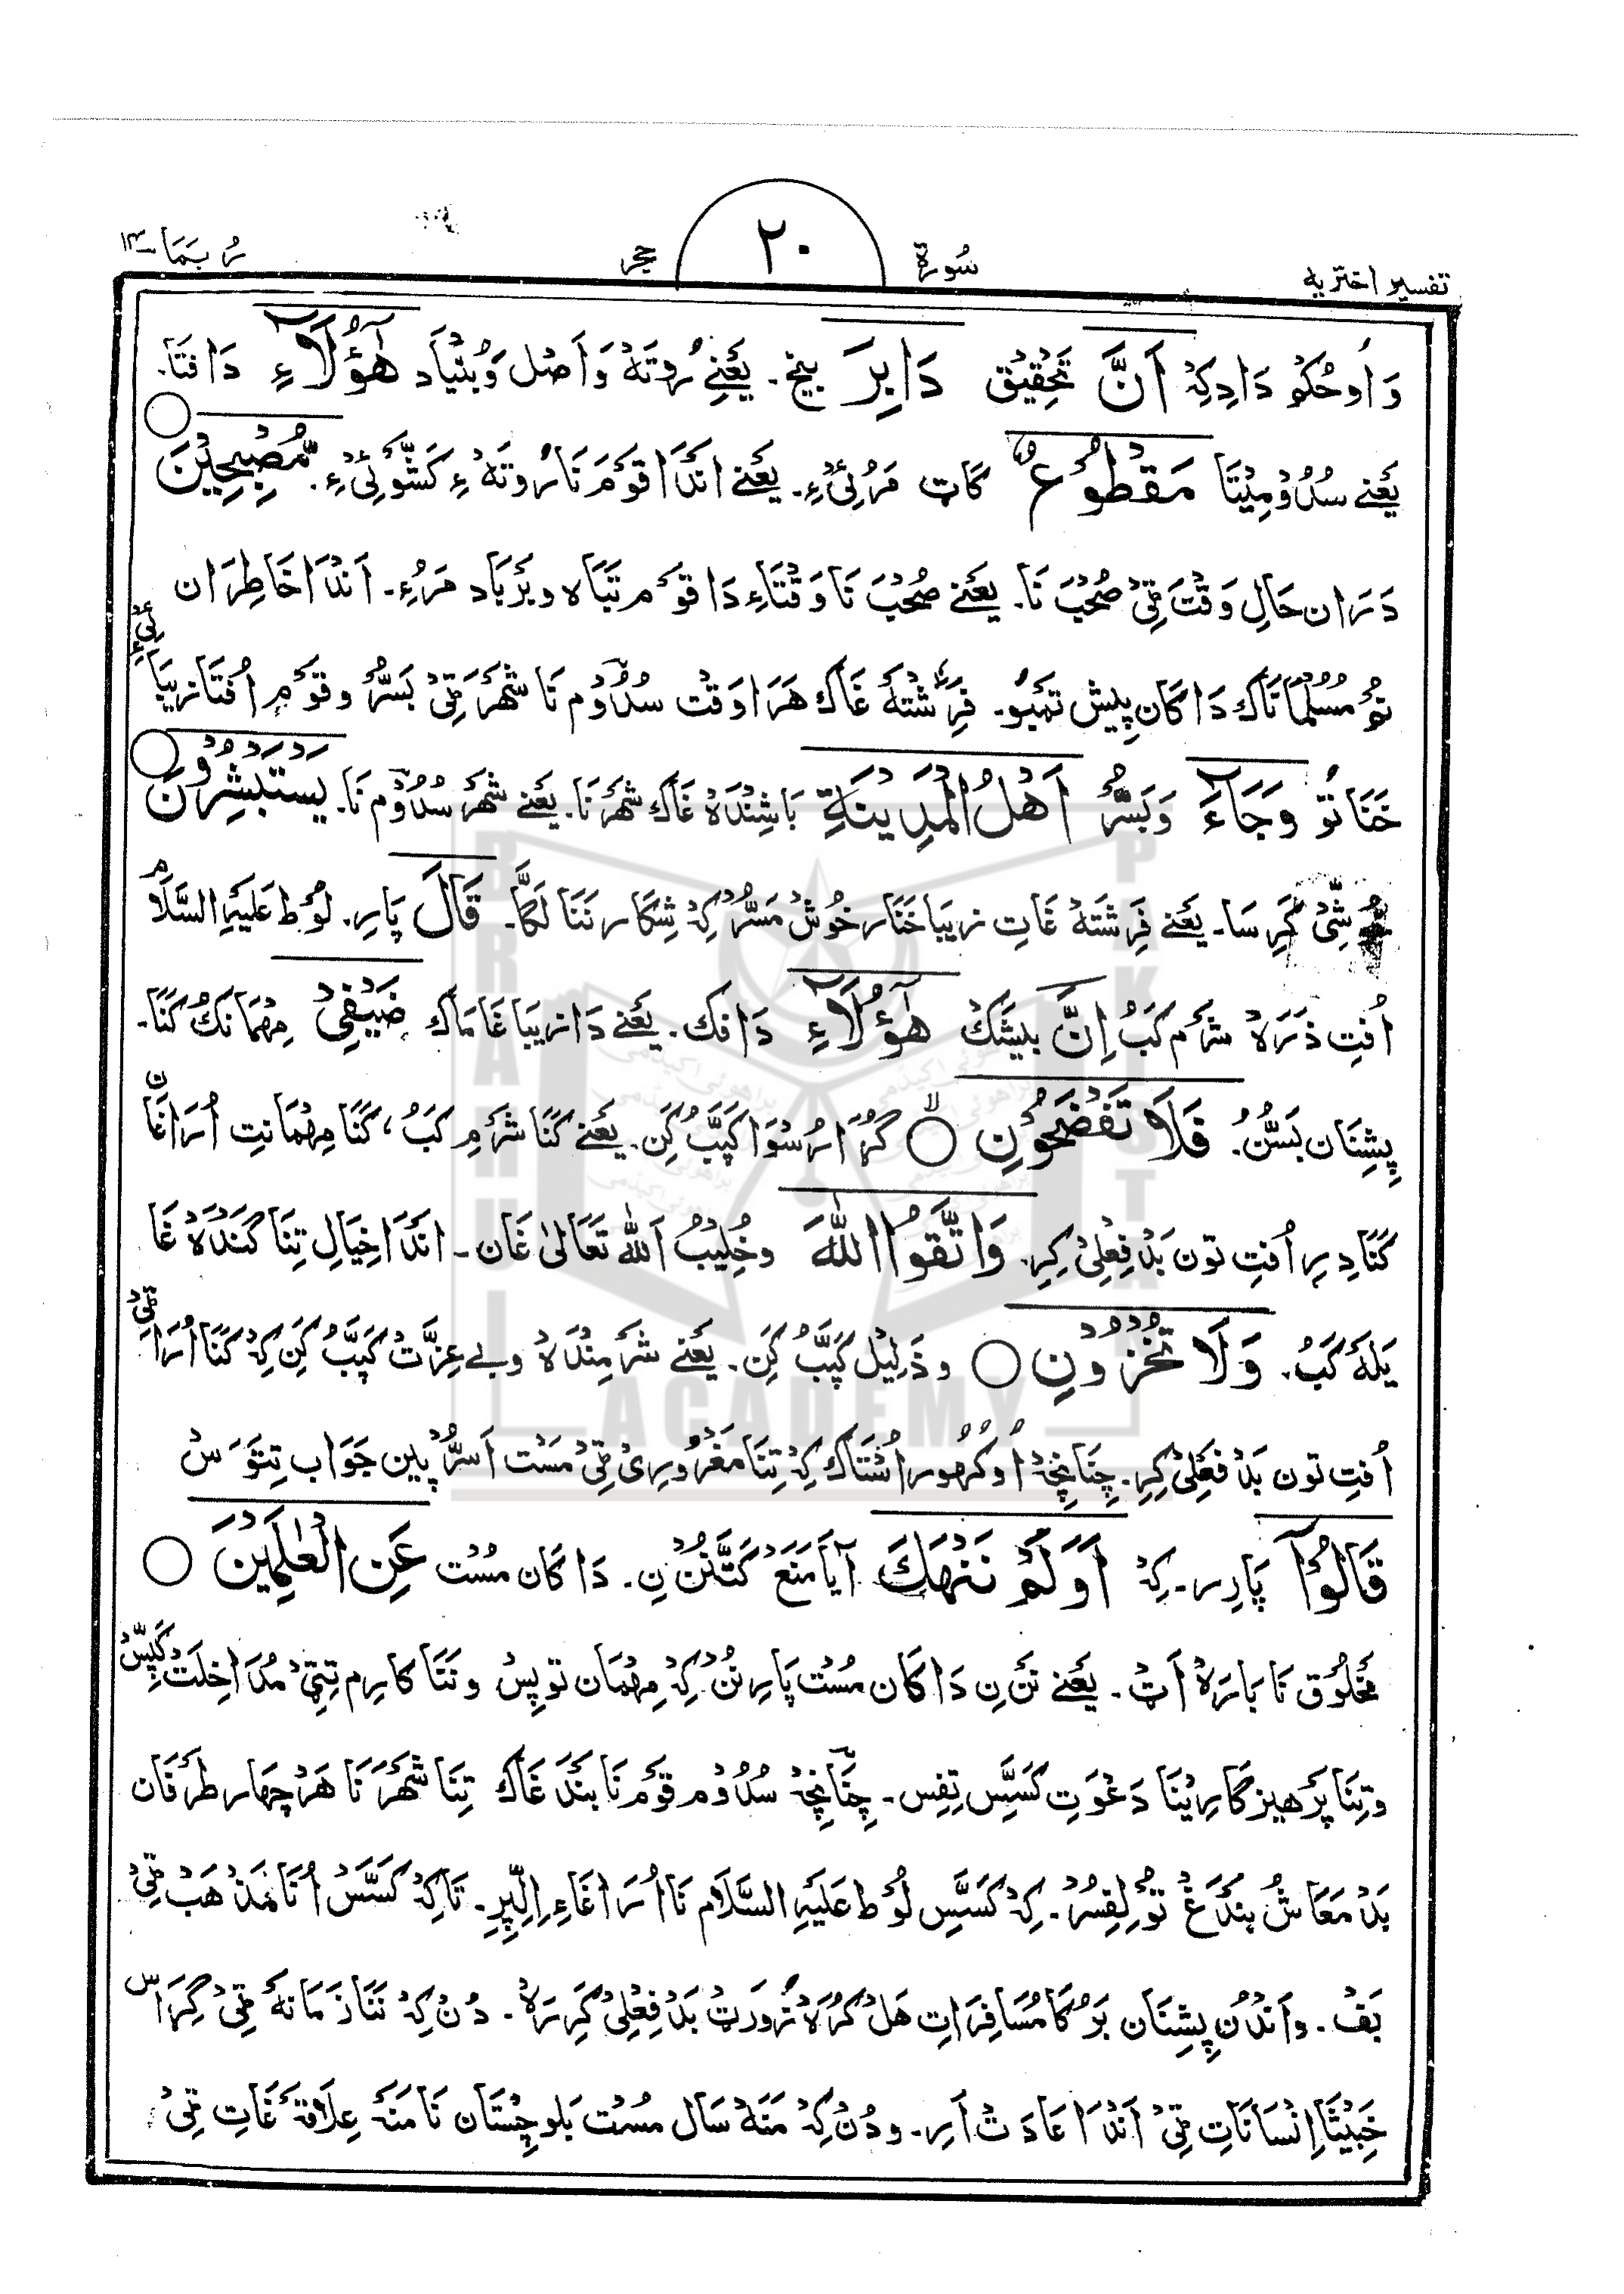 تفسیر اختریه
سُورة
٢٠
حجر
رُبَمَا ١٤
وَ اُو حُکم دَادِکِہْ اَنَّ تَحْقِیْق دَابِرَ بیخ۔ یَعْنِے رُوتَہْ وَ اَصْل وَ بُنْیَاد هٰٓؤُلَآءِ دَافتَا۔
یَعْنے سُدُوْمِیْتَا مَقْطُوْعٌ کَات مَرُنِیْ ءِ۔ یَعْنے اندَا قَوْم نَا رُوتَہ ءِ کَشّوئِیْ ءِ۔ مُّصْبِحِيْنَ ○
دَرَان حَالِ وَقْت ٹِیْ صُحْب نَا۔ یَعْنے صُحْب نَا وَقْتَاءِ دَا قَوْم تَبَاہ و بَرْبَاد مَرُءِ۔ اَنْدَا خَاطِرَان
نُمْ مُسُلمَانَاک دَاکَان پِیش تَمْبو۔ فَرِشْتَہ غَاک هَرَا وَقْت سُدُوْم نَا شَهْر ٹِیْ بَسُّر و قَوْم اُفْتَا زِیبَائِیْ ءِ
خَنَانُو وَجَآءَ وَ بَسُّر اَهْلُ الْمَدِيْنَةِ بَاشِنْدَہ غَاک شَهْر نَا۔ یَعْنے شَهْر سُدُوْم نَا۔ يَسْتَبْشِرُوْنَ ○
خُوشِّیْ کَرِسَا۔ یَعْنے فَرِشْتَہ غَاتِ زیبَا خَنَار خُوش مَسُّر کِہْ شِکَار نَنَا لَگَّا۔ قَالَ پَارِ۔ لُوْط عَلَیْہِ السَّلَام
اُفتِ ذَرَہ شَرْم کَبُ اِنَّ بیشک هٰٓؤُلَآءِ دَافک۔ یَعْنے دَا زیبَا غَامَاک ضَيْفِيْ مِهْمَانک کَنَا۔
پِیشِنَان بَسُّن۔ فَلَا تَفْضَحُوْنِ ○ گُڑَا رُسْوَا کَپَّبُ کَنِ۔ یَعْنے کَنَا شَرْمِ کَبُ، کَنَا مِهْمَانتِ اُرَاغَان
کَنَا دِیرِ اُفتِ تون بَدفِعْلِیْ کِرِ۔ وَاتَّقُوا اللّٰهَ وخُلِیْبُ اَللّٰہ تَعَالیٰ غَان۔ اندَا خِیَالِ تِنَا گَنْدَہ غَا
یَلَہ کَبُ۔ وَلَا تُخْزُوْنِ ○ و ذَلِیْل کَپَّبُ کَنِ۔ یَعْنے شَرْمِنْدَہ و بے عِزَّت کَپَّبُ کَنِ کِہْ کَنَا اُرَاٹِیْ
اُفتِ تون بَد فِعْلِیْ کِرِ۔ چُنَانچِہْ اُو کُهور اُشْتَاک کِہْ تِنَا مَغْرُورِی ٹِیْ مَسْت اَسُّر پین جَوَاب تِتَوَس
قَالُوْٓا پَارِر۔ کِہْ اَوَلَمْ نَنْهَكَ آیَا مَنَع کَتَّنُن نِ۔ دَاکَان مُسْت عَنِ الْعٰلَمِيْنَ ○
مَخْلُوْق نَا بَارَہ اَٹ۔ یَعْنے نَن نِ دَاکَان مُسْت پَارِنُن کِہْ مِهْمَان تُوپِس و نَنَا کارِم تیٹِیْ مُدَاخِلَت کَپِّس
و تِنَا پَرْهیزگَارِیْنَا دَعْوَت کَسِّس تِفِس۔ چُنَانچِہْ سُدُوْم قَوْم نَا بَنْدَ غَاک تِنَا شَهْر نَا هَر چهَار طَرْفَان
بَد مَعَاش بَنْدَغ تُولِفِسُر۔ کِہْ کَسِّس لُوط عَلَیْہِ السَّلَام نَا اُرَاغَاءِ اِلِپِرِ۔ تَاکِہْ کَسَّس اُنَا مَذْهَب ٹِیْ
بَف۔ و اَنْدُن پِیشِنَان بَرُ کَا مُسَافِرَاتِ هَل کَرُہ زُورَٹ بَدفِعْلِیْ کَرِرَہ۔ دُن کِہْ نَنَا زَمَانَہ ٹِیْ گِرَاس
خَبِیْثَا اِنْسَانَاتِ ٹِیْ اَنْدَا عَادَت اَرِ۔ و دُن کِہْ مَنَہ سَال مُسْت بَلوچِسْتَان نَا مَنَہ عِلَاقَہ غَاتِ ٹِیْ
BRAHUI ACADEMY PAKISTAN